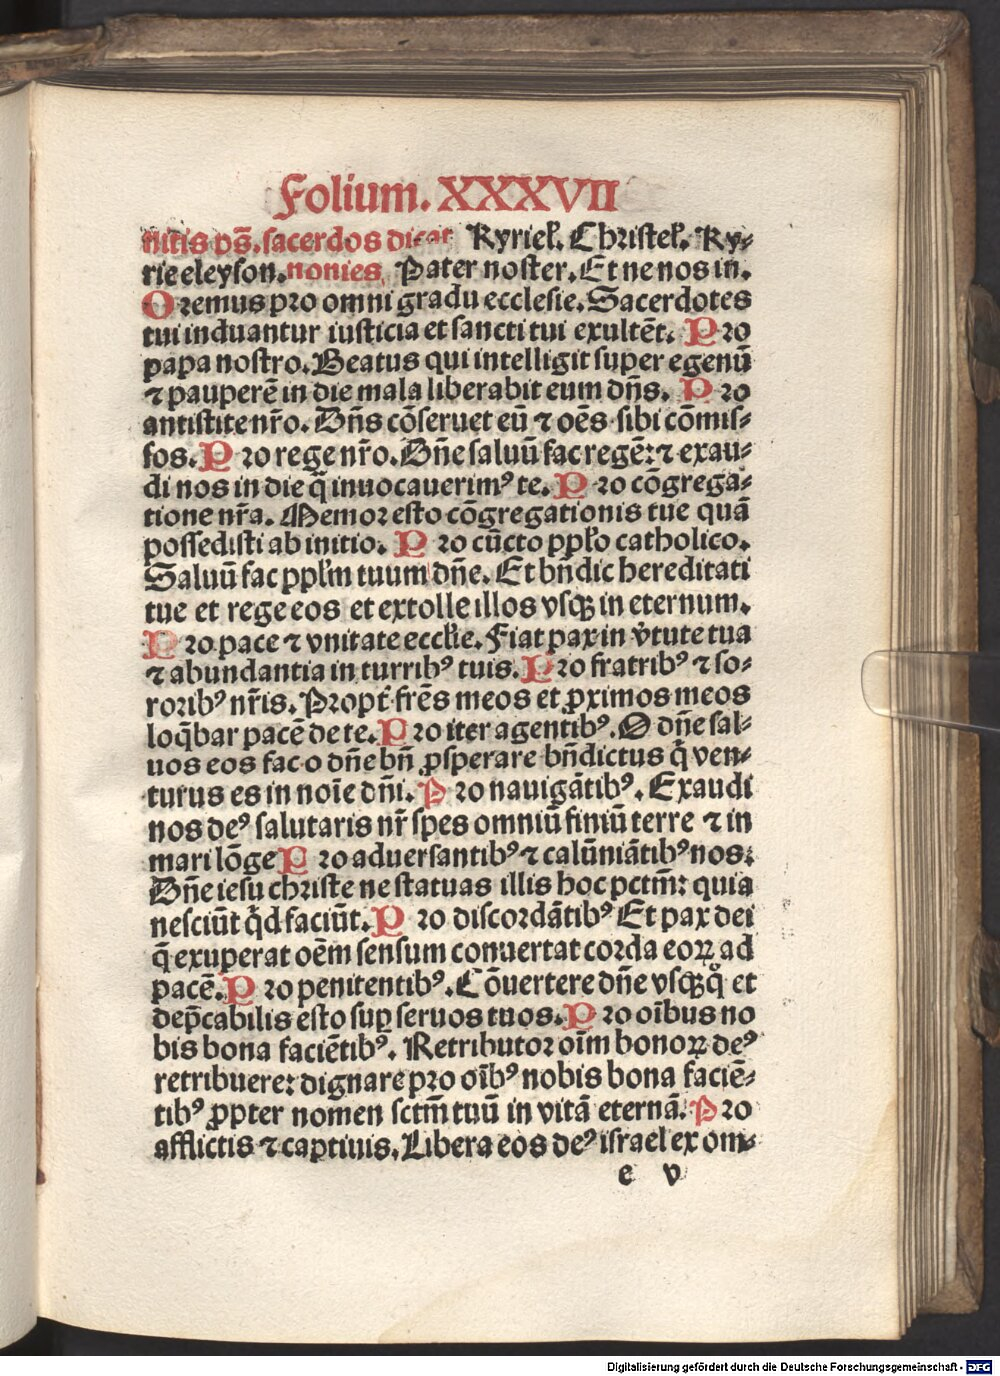 Folium. XXXVII
nitis ps̄. sacerdos dicat Kyriel̓. Christel̓. Ky⸗
rie eleyson. nonies. Pater noster. Et ne nos in.
Oremus pro omni gradu ecclesie. Sacerdotes
tui induantur iusticia et sancti tui exultēt. Pro
papa nostro. Beatus qui intelligit super egenū
⁊ pauperē in die mala liberabit eum dn̄s. Pro
antistite nr̄o. Dn̄s cōseruet eū ⁊ oēs sibi cōmis⸗
sos. Pro rege nr̄o. Dn̄e saluū fac regē: ⁊ exau⸗
di nos in die q̄ inuocauerimꝰ te. Pro cōgrega⸗
tione nr̄a. Memor esto cōgregationis tue quā
possedisti ab initio. Pro cūcto ppl̓o catholico.
Saluū fac ppl̓m tuum dn̄e. Et bn̄dic hereditati
tue et rege eos et extolle illos vsqꝫ in eternum.
Pro pace ⁊ vnitate eccl̓ie. Fiat pax in v̓tute tua
⁊ abundantia in turribꝰ tuis. Pro fratribꝰ ⁊ so⸗
roribꝰ nr̄is. Propt̓ fr̄es meos et ꝓximos meos
loq̄bar pacē de te. Pro iter agentibꝰ. O dn̄e sal⸗
uos eos fac o dn̄e bn̄ ꝓsperare bn̄dictus q̓ ven⸗
turus es in noīe dn̄i. Pro nauigātibꝰ. Exaudi
nos deꝰ salutaris nr̄ spes omniū finiū terre ⁊ in
mari lōge Pro aduersantibꝰ ⁊ calūniātibꝰ nos.
Dn̄e iesu christe ne statuas illis hoc pctm̄: quia
nesciūt q̓d faciūt. Pro discordātibꝰ Et pax dei
q̄ exuperat oēm sensum conuertat corda eoꝝ ad
pacē. Pro penitentibꝰ. Cōuertere dn̄e vsqꝫq̊ et
dep̄cabilis esto suꝑ seruos tuos. Pro oībus no
bis bona faciētibꝰ. Retributor oīm bonoꝝ deꝰ
retribuere: dignare pro oībꝰ nobis bona faciē⸗
tibꝰ ꝓpter nomen sctm̄ tuū in vitā eternā. Pro
afflictis ⁊ captiuis. Libera eos deꝰ israel ex om⸗
e v
Digitalisierung gefördert durch die Deutsche Forschungsgemeinschaft - DFG